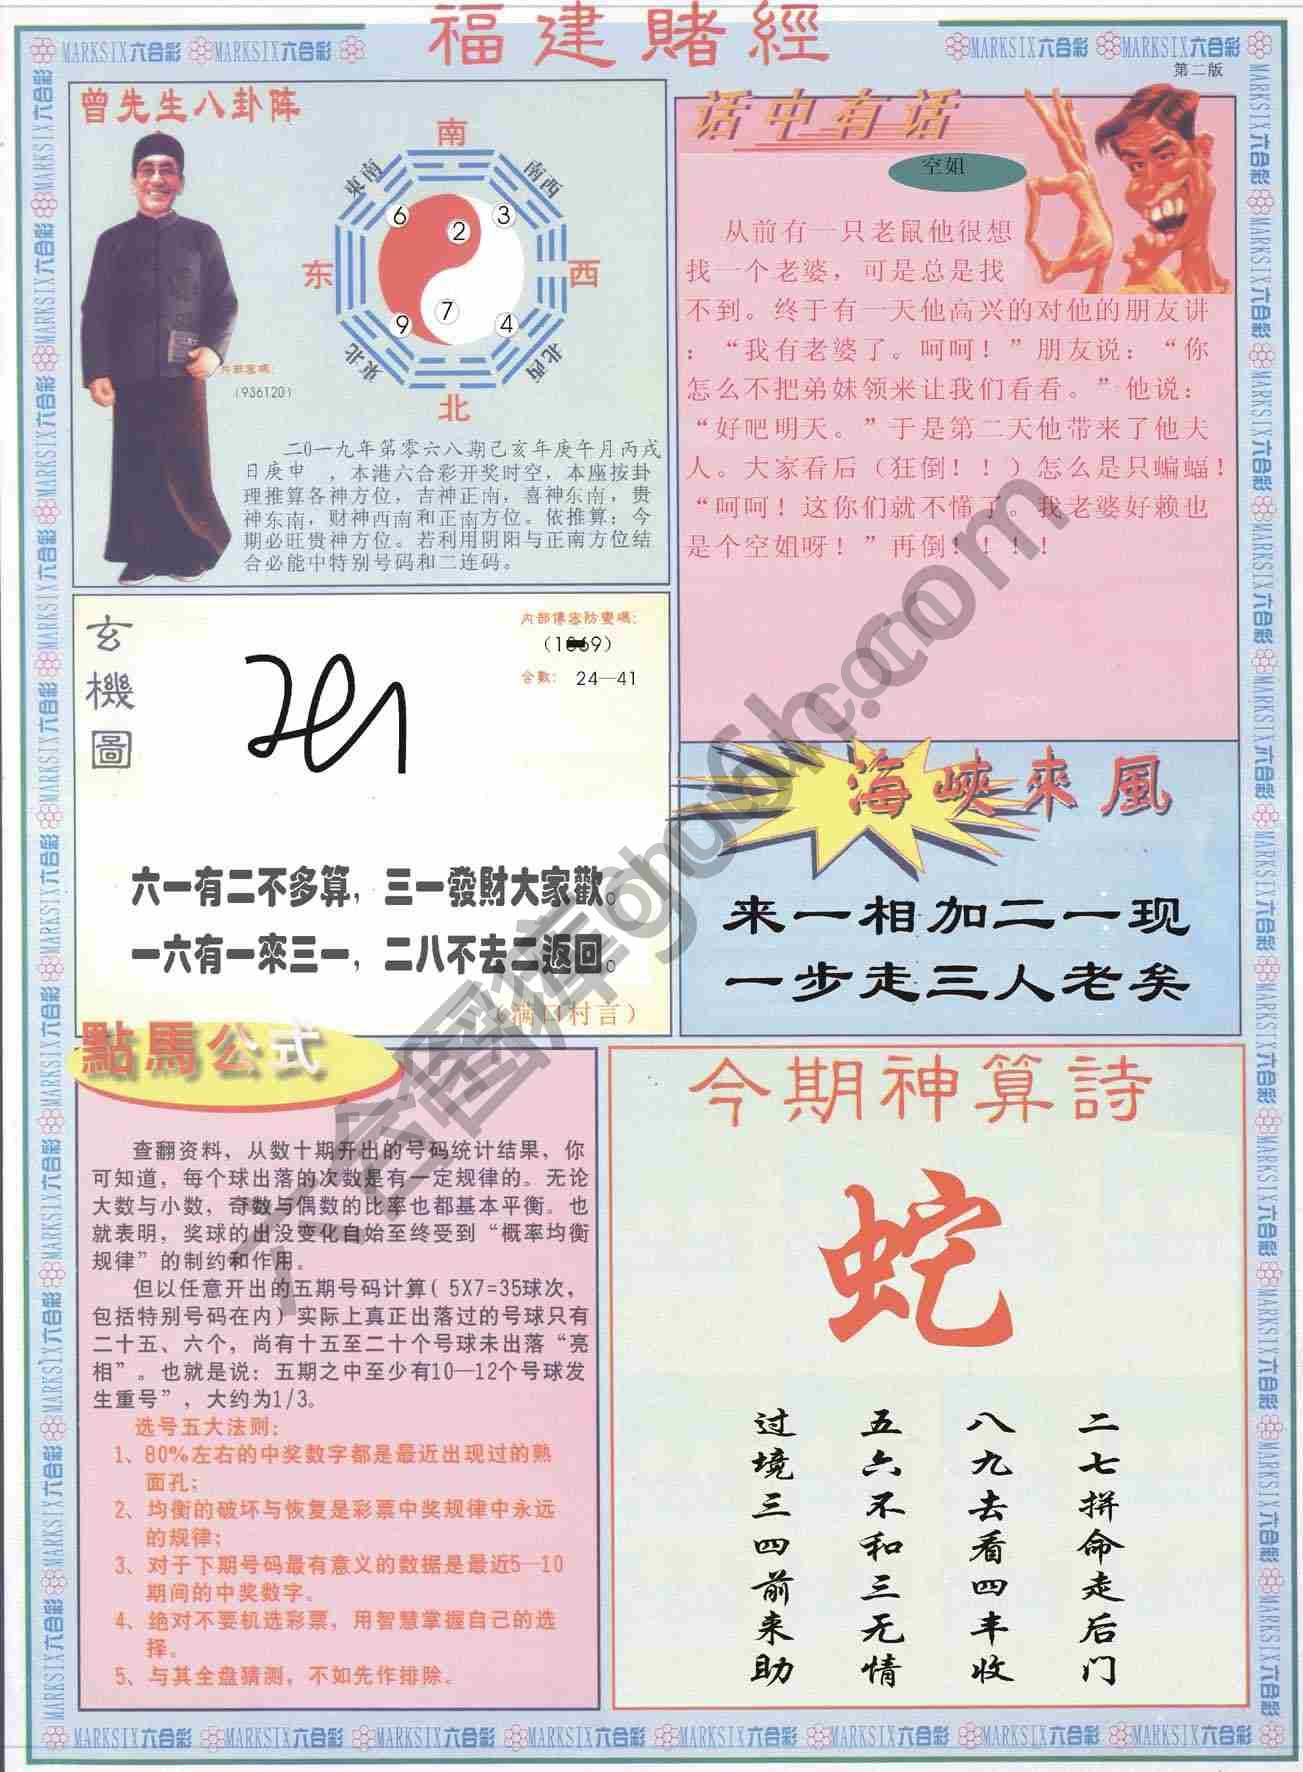 福建賭經
MARKSIX六合彩 MARKSIX六合彩
MARKSIX六合彩 MARKSIX六合彩
第二版
曾先生八卦阵
南
東南
南西
6
2
3
东
西
7
9
4
東北
北西
北
内部密碼：
(936120)
二0一九年第零六八期己亥年庚午月丙戌
日庚申　，本港六合彩开奖时空，本座按卦
理推算各神方位，吉神正南，喜神东南，贵
神东南，财神西南和正南方位。依推算：今
期必旺贵神方位。若利用阴阳与正南方位结
合必能中特别号码和二连码。
话中有话
空姐
从前有一只老鼠他很想
找一个老婆，可是总是找
不到。终于有一天他高兴的对他的朋友讲
：“我有老婆了。呵呵！”朋友说：“你
怎么不把弟妹领来让我们看看。”他说：
“好吧明天。”于是第二天他带来了他夫
人。大家看后（狂倒！！）怎么是只蝙蝠！
“呵呵！这你们就不懂了。我老婆好赖也
是个空姐呀！”再倒！！！！
玄機圖
内部傳密防變碼：
合數： 24—41
六一有二不多算，三一發財大家歡。
一六有一來三一，二八不去二返回。
（满口村言）
海峽來風
来一相加二一现
一步走三人老矣
點馬公式
查翻资料，从数十期开出的号码统计结果，你
可知道，每个球出落的次数是有一定规律的。无论
大数与小数，奇数与偶数的比率也都基本平衡。也
就表明，奖球的出没变化自始至终受到“概率均衡
规律”的制约和作用。
但以任意开出的五期号码计算( 5X7=35球次，
包括特别号码在内）实际上真正出落过的号球只有
二十五、六个，尚有十五至二十个号球未出落“亮
相”。也就是说：五期之中至少有10—12个号球发
生重号”，大约为1/3。
选号五大法则：
1、80%左右的中奖数字都是最近出现过的熟
面孔；
2、均衡的破坏与恢复是彩票中奖规律中永远
的规律；
3、对于下期号码最有意义的数据是最近5—10
期间的中奖数字。
4、绝对不要机选彩票，用智慧掌握自己的选
择。
5、与其全盘猜测，不如先作排除。
今期神算詩
蛇
二七拼命走后门
八九去看四丰收
五六不和三无情
过境三四前来助
MARKSIX六合彩 MARKSIX六合彩 MARKSIX六合彩 MARKSIX六合彩 MARKSIX六合彩 MARKSIX六合彩 MARKSIX六合彩 MARKSIX六合彩